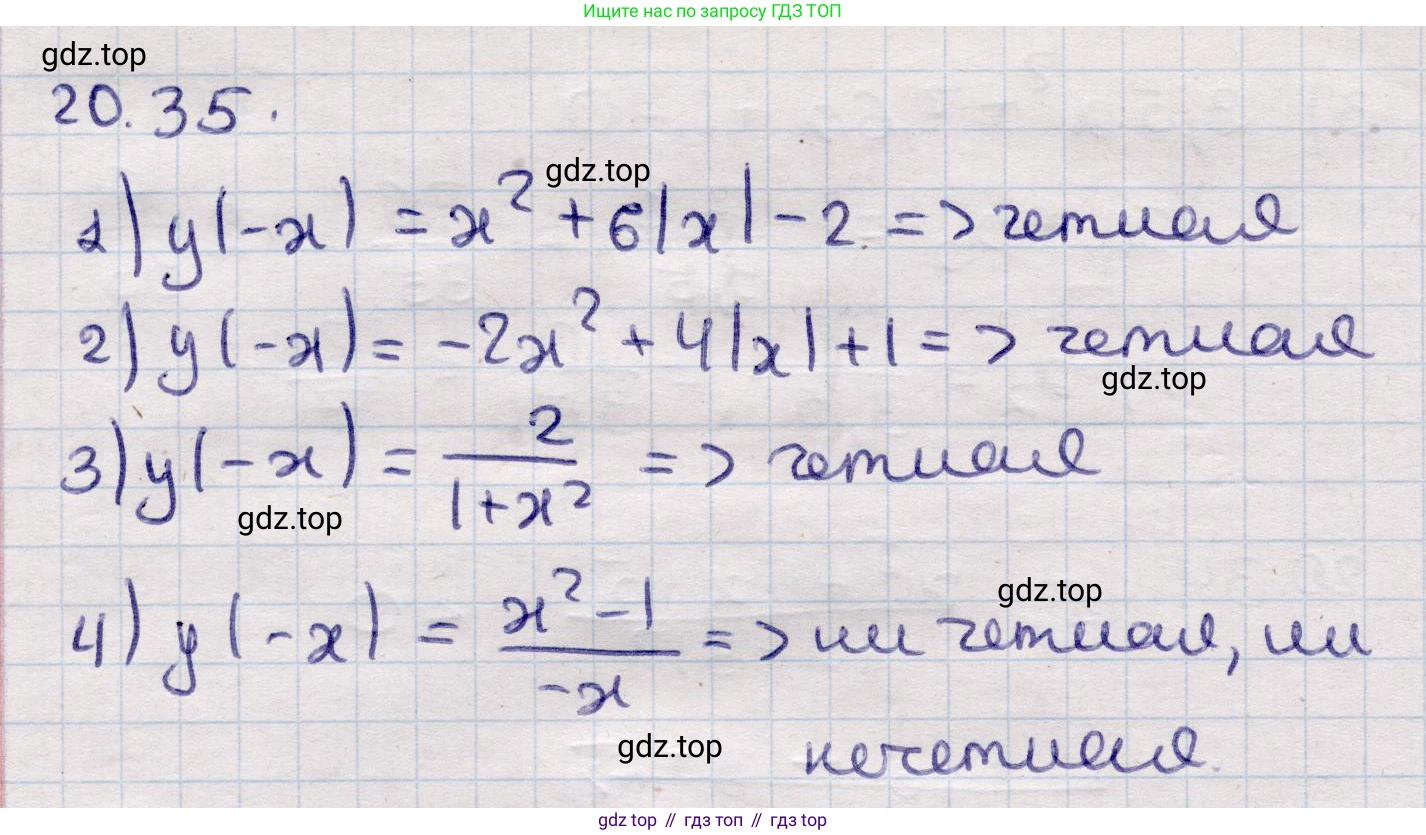 Ищите нас по запросу ГДЗ ТОП
gdz.top
20.35.
gdz.top
1) y(-x) = x² + 6|x| - 2 => четная
2) y(-x) = -2x² + 4|x| + 1 => четная
gdz.top
3) y(-x) = 2/(1+x²) => четная
gdz.top
gdz.top
4) y(-x) = (x²-1)/(-x) => ни четная, ни
нечетная.
gdz.top
gdz top // гдз топ // гдз top